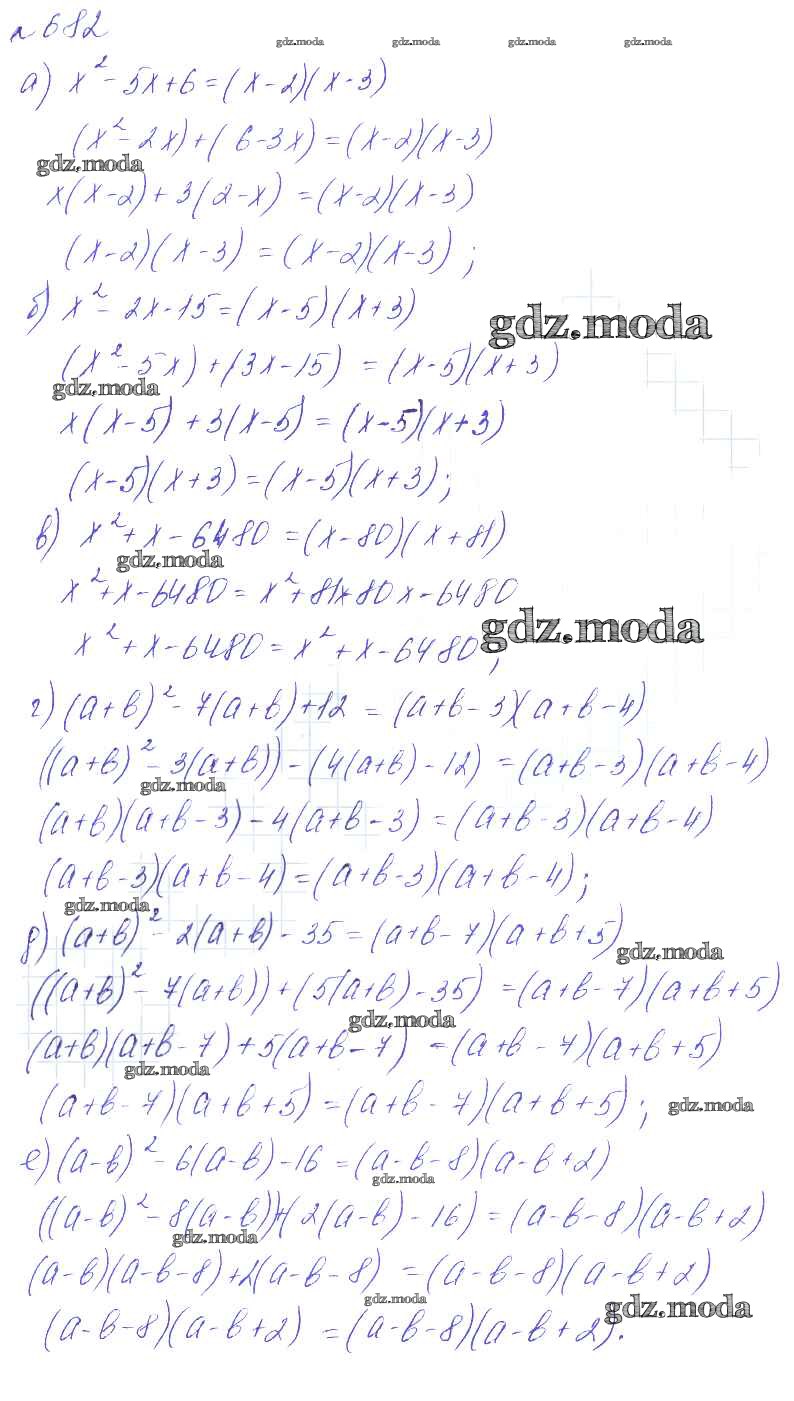 №682
gdz.moda gdz.moda gdz.moda gdz.moda
а) x² - 5x + 6 = (x - 2)(x - 3)
(x² - 2x) + (6 - 3x) = (x - 2)(x - 3)
gdz.moda
x(x - 2) + 3(2 - x) = (x - 2)(x - 3)
(x - 2)(x - 3) = (x - 2)(x - 3);
б) x² - 2x - 15 = (x - 5)(x + 3)
gdz.moda
(x² - 5x) + (3x - 15) = (x - 5)(x + 3)
gdz.moda
x(x - 5) + 3(x - 5) = (x - 5)(x + 3)
(x - 5)(x + 3) = (x - 5)(x + 3);
в) x² + x - 6480 = (x - 80)(x + 81)
gdz.moda
x² + x - 6480 = x² + 81x - 80x - 6480
gdz.moda
x² + x - 6480 = x² + x - 6480;
г) (a + b)² - 7(a + b) + 12 = (a + b - 3)(a + b - 4)
((a + b)² - 3(a + b)) - (4(a + b) - 12) = (a + b - 3)(a + b - 4)
gdz.moda
(a + b)(a + b - 3) - 4(a + b - 3) = (a + b - 3)(a + b - 4)
(a + b - 3)(a + b - 4) = (a + b - 3)(a + b - 4);
gdz.moda
д) (a + b)² - 2(a + b) - 35 = (a + b - 7)(a + b + 5)
gdz.moda
((a + b)² - 7(a + b)) + (5(a + b) - 35) = (a + b - 7)(a + b + 5)
gdz.moda
(a + b)(a + b - 7) + 5(a + b - 7) = (a + b - 7)(a + b + 5)
gdz.moda
(a + b - 7)(a + b + 5) = (a + b - 7)(a + b + 5);
gdz.moda
е) (a - b)² - 6(a - b) - 16 = (a - b - 8)(a - b + 2)
gdz.moda
((a - b)² - 8(a - b)) + (2(a - b) - 16) = (a - b - 8)(a - b + 2)
gdz.moda
(a - b)(a - b - 8) + 2(a - b - 8) = (a - b - 8)(a - b + 2)
gdz.moda
gdz.moda
(a - b - 8)(a - b + 2) = (a - b - 8)(a - b + 2).